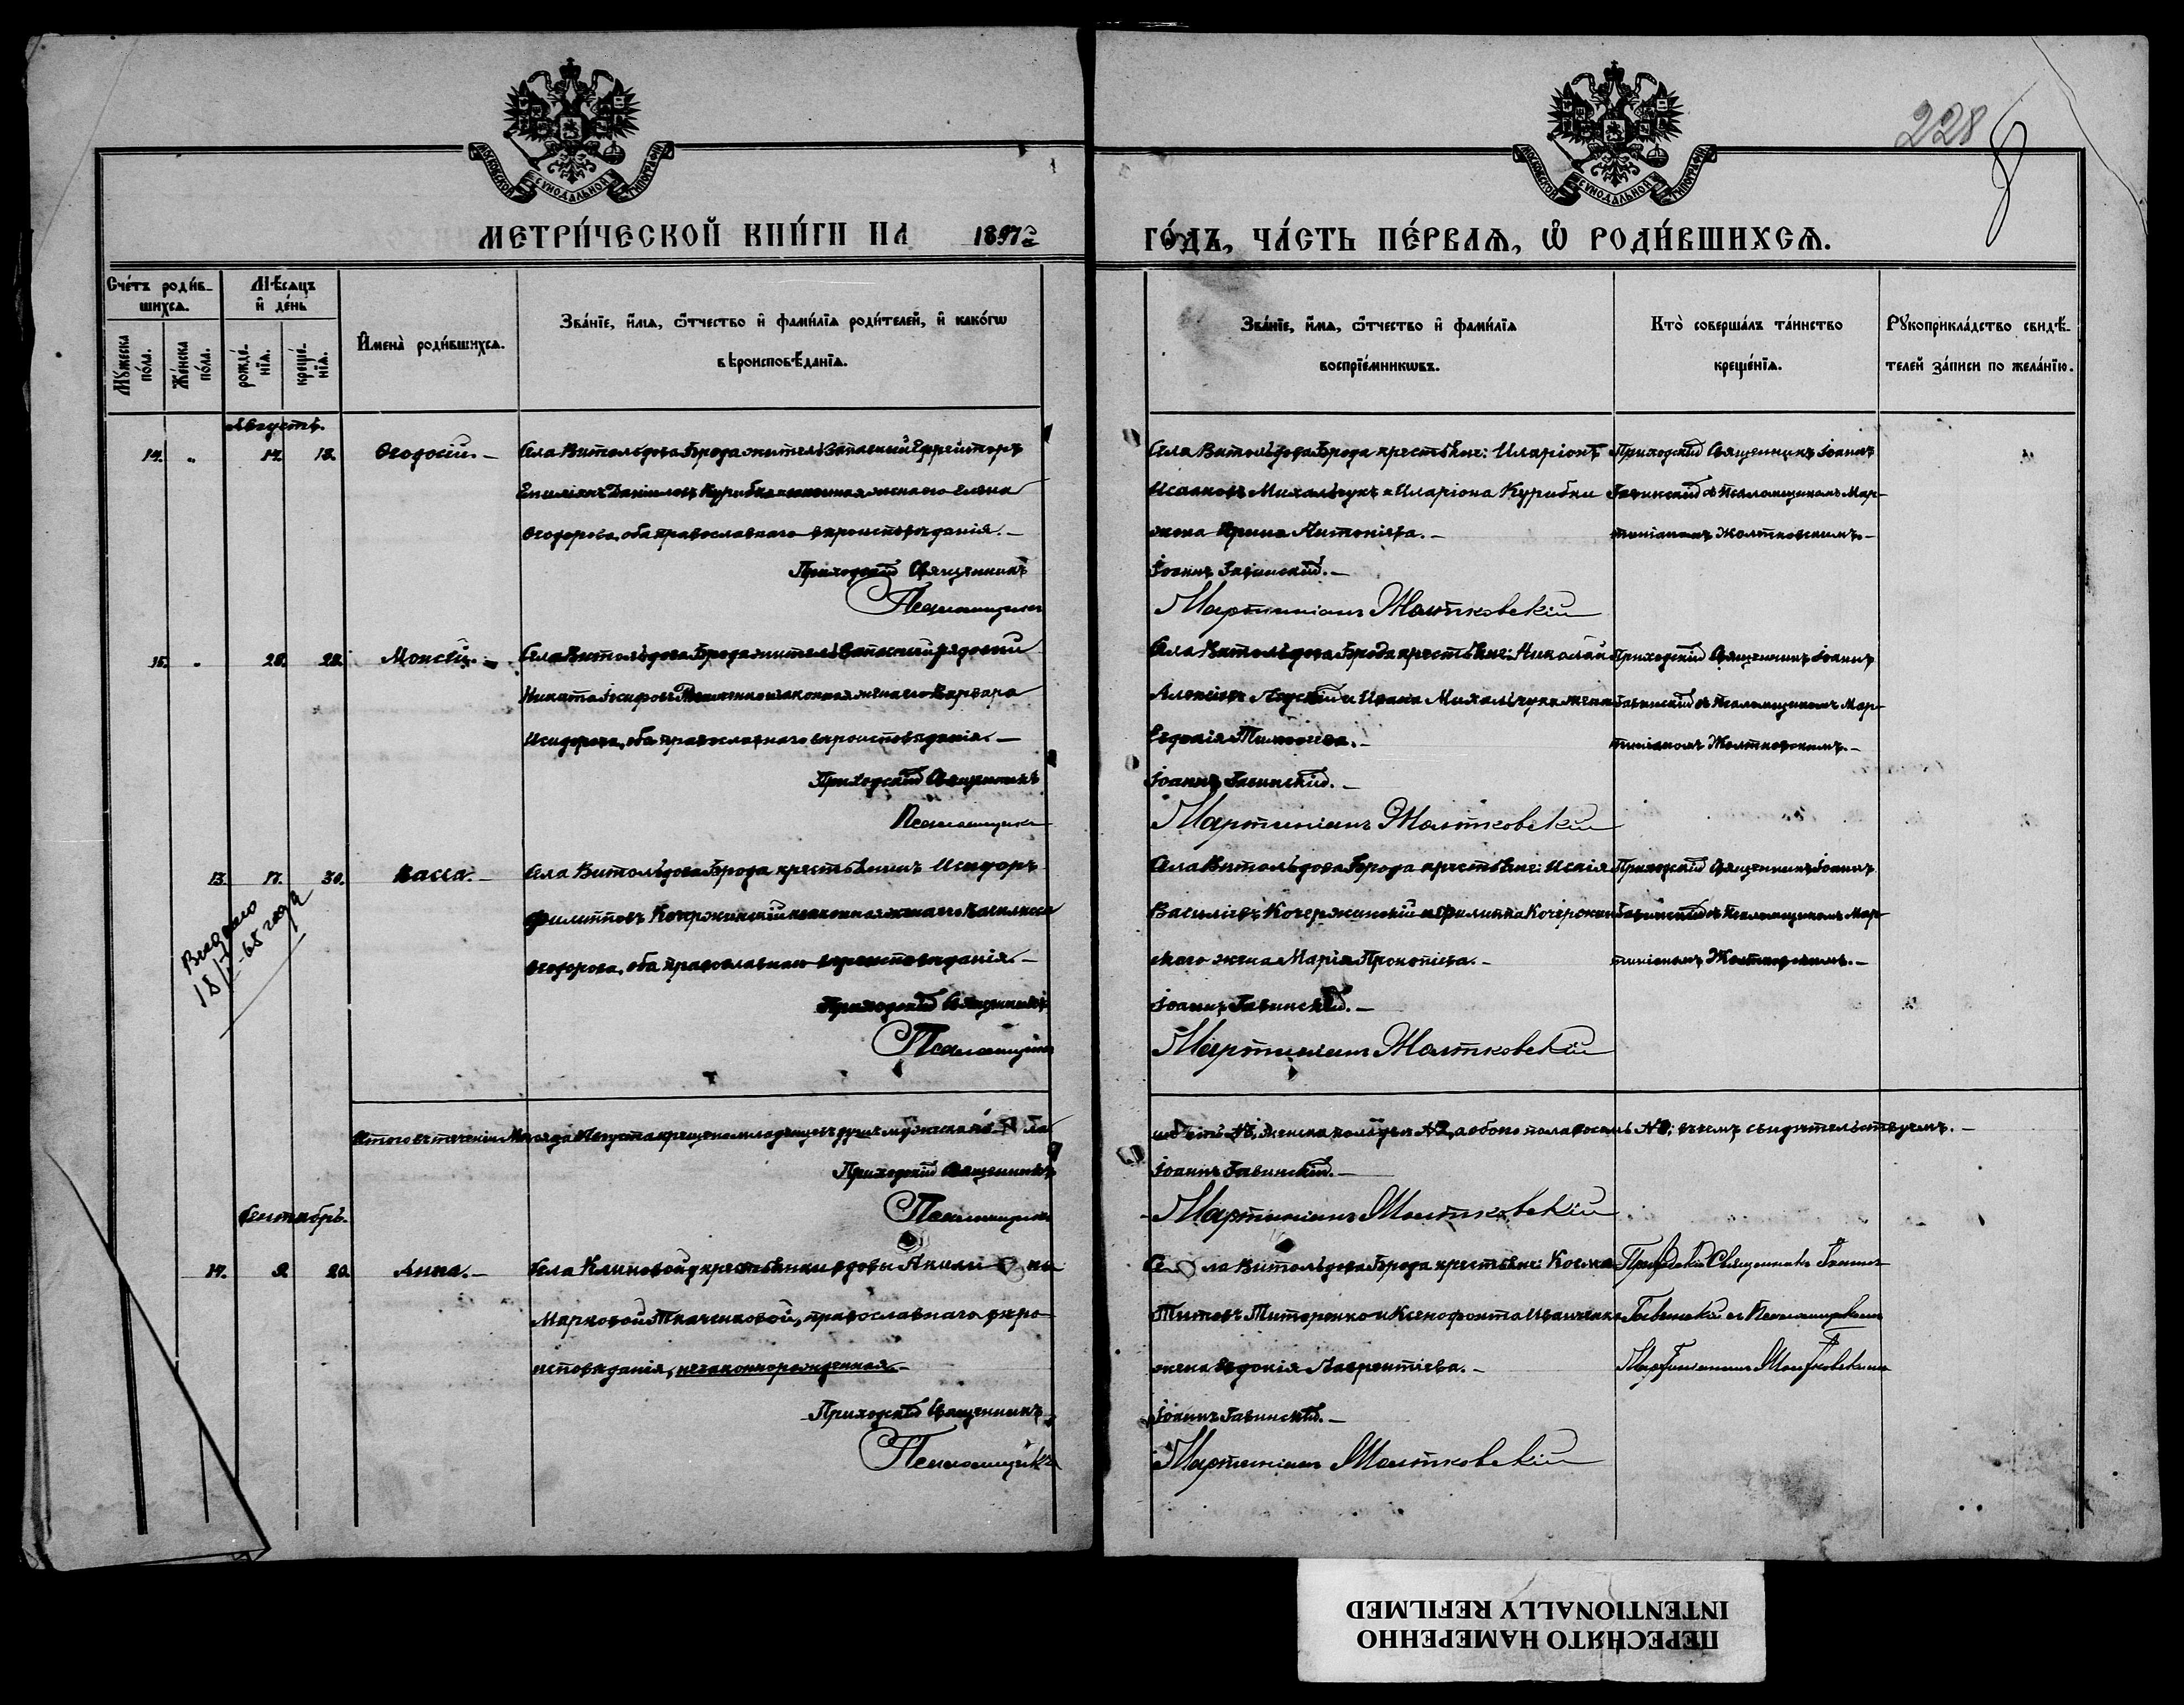 МОСКОВСКОЙ СѴНОДАЛЬНОЙ ТИПОГРАФІИ
МОСКОВСКОЙ СѴНОДАЛЬНОЙ ТИПОГРАФІИ
228
МЕТРИ́ЧЕСКОЙ КНИ́ГИ НА 1897й
ГО́ДЪ, ЧА́СТЬ ПЕ́РВАѦ, Ѽ РОДИ́ВШИХСѦ.
Сче́тъ роди́в-
шихсѧ.
Мѣ́сѧцъ
и҆ де́нь
Мꙋ́жеска по́ла.
Же́нска по́ла.
рожде́-
нїѧ.
креще́-
нїѧ.
И҆мена̀ роди́вшихсѧ.
Зва́нїе, и҆́мѧ, ѻ҆́тчество и҆ фами́лїѧ роди́телей, и҆ како́гѡ
вѣроисповѣ́данїѧ.
Зва́нїе, и҆́мѧ, ѻ҆́тчество и҆ фами́лїѧ
воспрїе́мникѡвъ.
Кто̀ соверша́лъ та́инство
креще́нїѧ.
Рꙋкоприкла́дство свидѣ́-
телей за́писи по жела́нїю.
Августъ.
14. " 14. 18. Ѳеодосій.- Села Витольдова Брода житель запасный Ефрейторъ
Даніиловъ Курибка и законная жена его Елена
Ѳеодорова, оба православнаго вѣроисповѣданія.-
Приходскій Священникъ
Псаломщикъ
Села Витольдова Брода крестьяне: Иларіонъ
Исааковъ Михальчукъ и Иларіона Курибки
жена Ирина Антоніева.-
Іоаннъ Гавинскій.-
Мартиніанъ Жолтковскій
Приходскій Священникъ Іоаннъ
Гавинскій съ Псаломщикомъ Мар-
тиніаномъ Жолтковскимъ.-
15. " 28. 28. Моисей.- Села Витольдова Брода житель запасный рядовой
Никита Іосифовъ и законная жена его Варвара
Исидорова, оба православнаго вѣроисповѣданія.-
Приходскій Священникъ
Псаломщикъ
Села Витольдова Брода крестьяне: Николай
Алексіевъ и Ивана Михальчука жена
Евдокія Тимоѳіева.-
Іоаннъ Гавинскій.-
Мартиніанъ Жолтковскій
Приходскій Священникъ Іоаннъ
Гавинскій съ Псаломщикомъ Мар-
тиніаномъ Жолтковскимъ.-
13. 17. 30. Васса.- Села Витольдова Брода крестьянинъ Исидоръ
Филипповъ Кочержинскій и законная жена его Василисса
Ѳеодорова, оба православнаго вѣроисповѣданія.-
Приходскій Священникъ
Псаломщикъ
Села Витольдова Брода крестьяне: Исаія
Василіевъ Кочержинскій и Филиппа Кочержин-
скаго жена Марія Прокопіева.-
Іоаннъ Гавинскій.-
Мартиніанъ Жолтковскій
Приходскій Священникъ Іоаннъ
Гавинскій съ Псаломщикомъ Мар-
тиніаномъ Жолтковскимъ.-
18/ -65 года
Итого въ теченіи Мѣсяца Августа крещено младенцевъ душъ мужска по-ла
женска пола два №2, а обоего пола восемь №8; въ чемъ свидѣтельствуемъ.-
Приходскій Священникъ
Псаломщикъ
Іоаннъ Гавинскій.-
Мартиніанъ Жолтковскій
Сентябрь.
14. 9. 20. Анна.- Села Клиновой крестьянки вдовы
Марковой Ткаченковой, православнаго вѣро-
исповѣданія, незаконнорожденная.-
Приходскій Священникъ
Псаломщикъ
Села Витольдова Брода крестьяне: Косма
Титовъ Титоренко и Ксенофонта Иванченка
жена Евдокія Лаврентіева.-
Іоаннъ Гавинскій.-
Мартиніанъ Жолтковскій
Приходскій Священникъ Іоаннъ
Гавинскій съ Псаломщикомъ
Мартиніаномъ Жолтковскимъ
ПЕРЕСНЯТО НАМЕРЕННО
INTENTIONALLY REFILMED